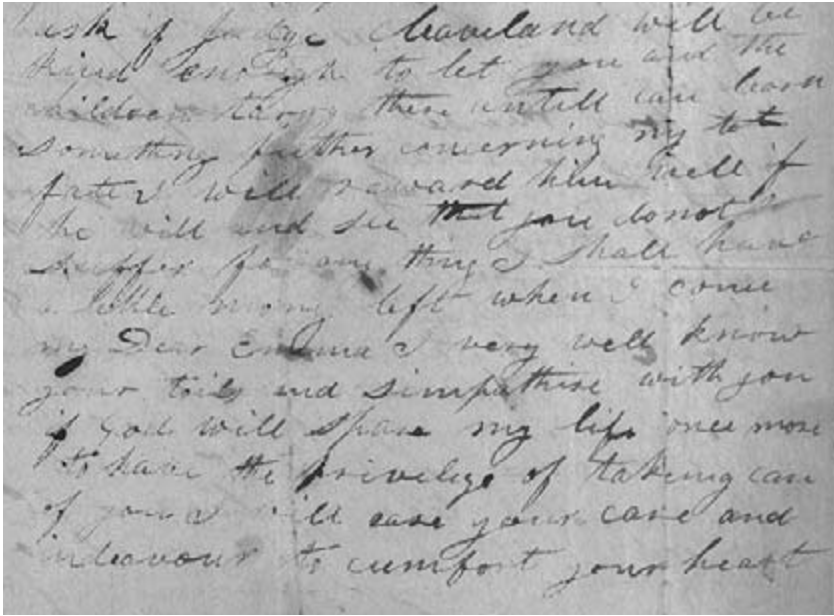 ask if judge Cleaveland will be
kind enough to let you and the
children tarry there untill can learn
something further concerning my
fate I will reward him well if
he will and see that you do not
suffer for any thing I shall have
a little mony left when I come
my Dear Emma I very well know
your toils and simpathise with you
if God will spare my life once more
to have the privelige of taking care
of you I will ease your care and
indeavour to cumfort your heart